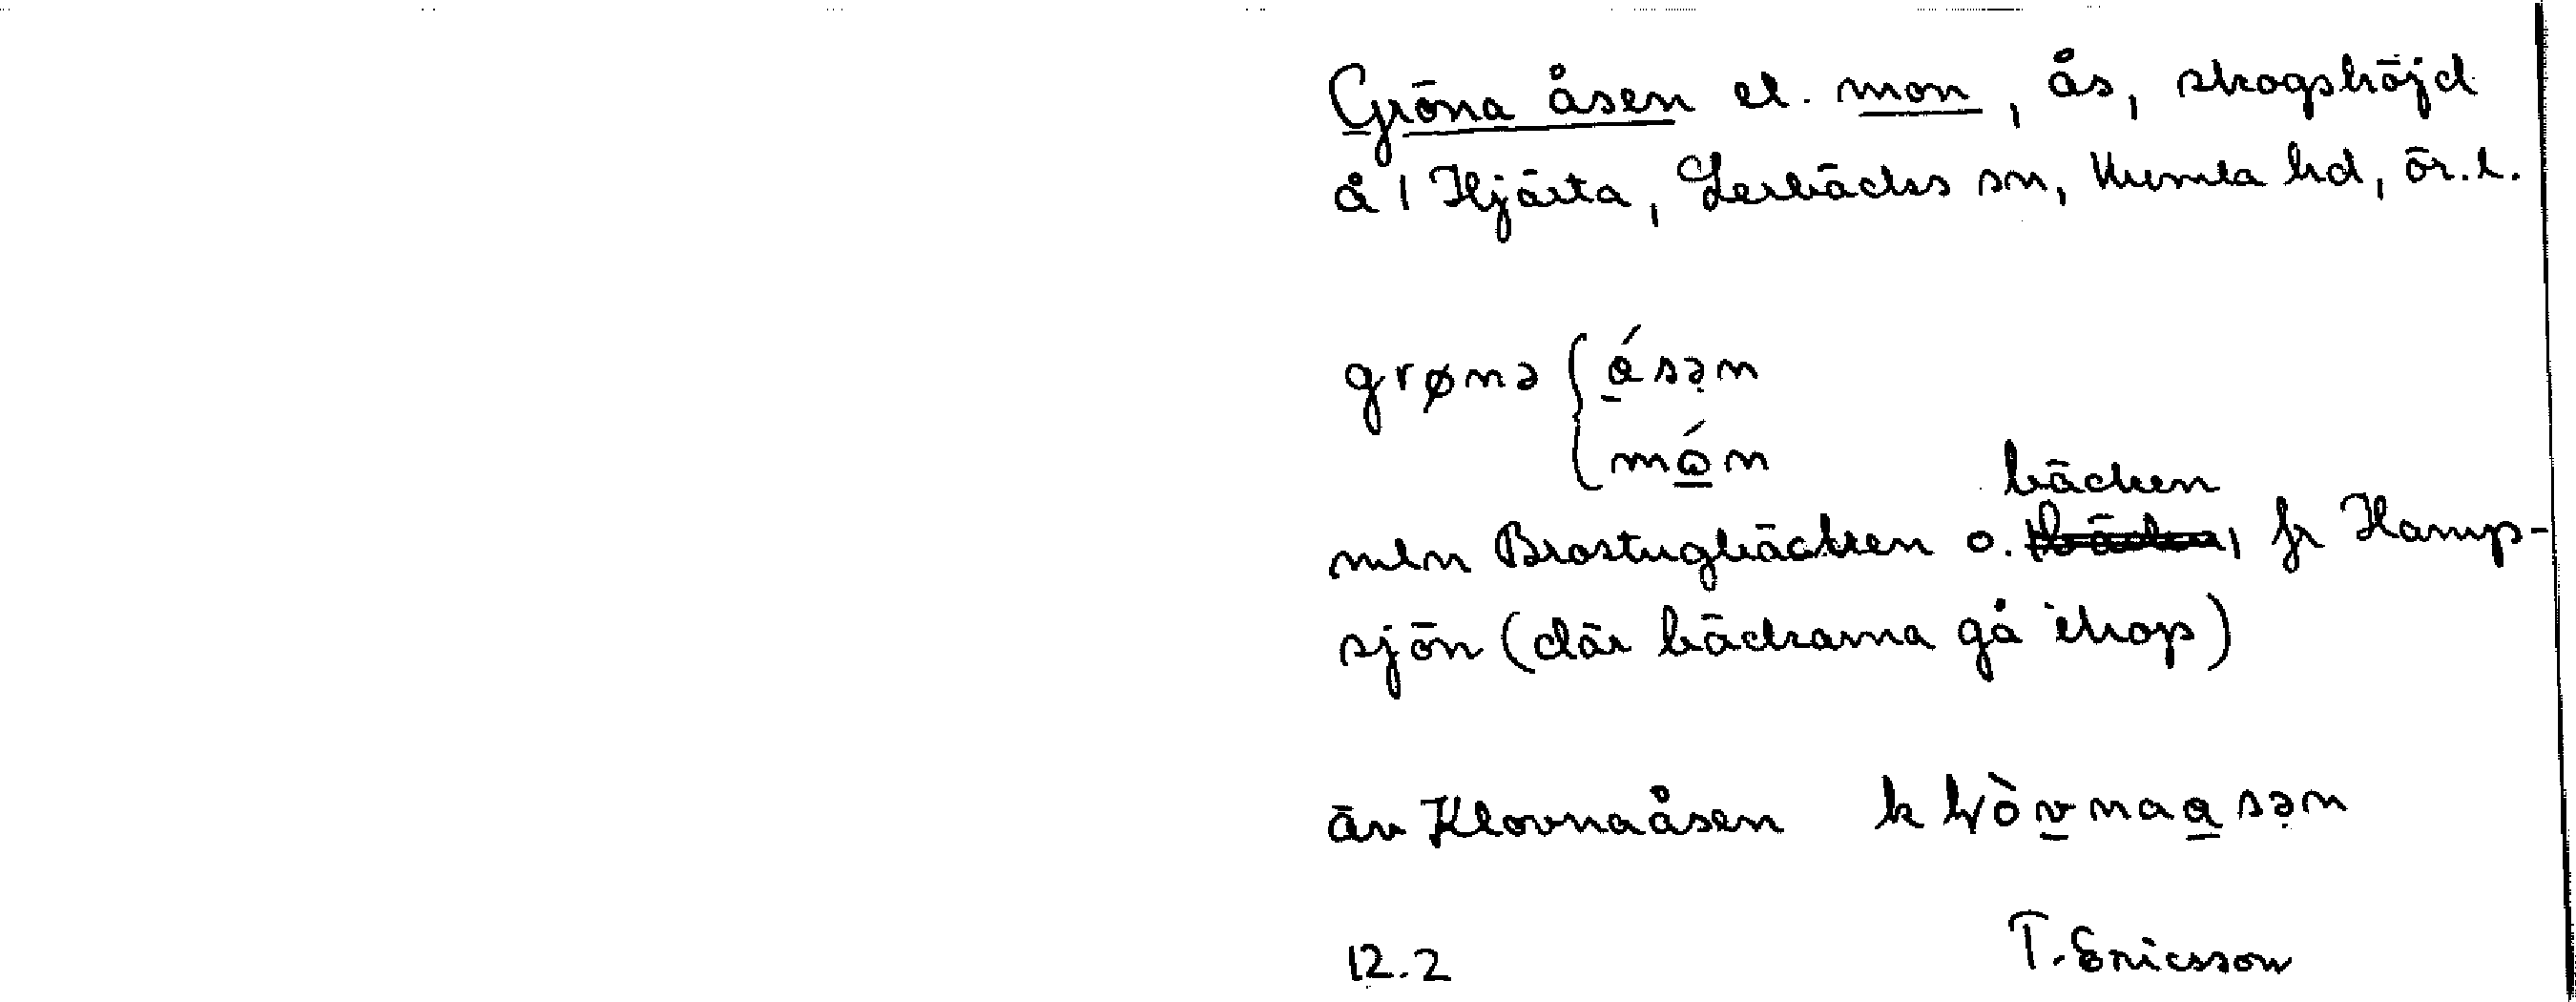 Gröna åsen el. mon, ås, skogshöjd
å 1 Hjärta, Lerbäcks sn, Kumla hd, Ör.l.
grønə { ásən
món
mln Brostugbäcken o. bäcken fr Hamp-
sjön (där bäckarna gå ihop)
äv Klovnaåsen kɫòvnaasən
12.2 T. Ericsson